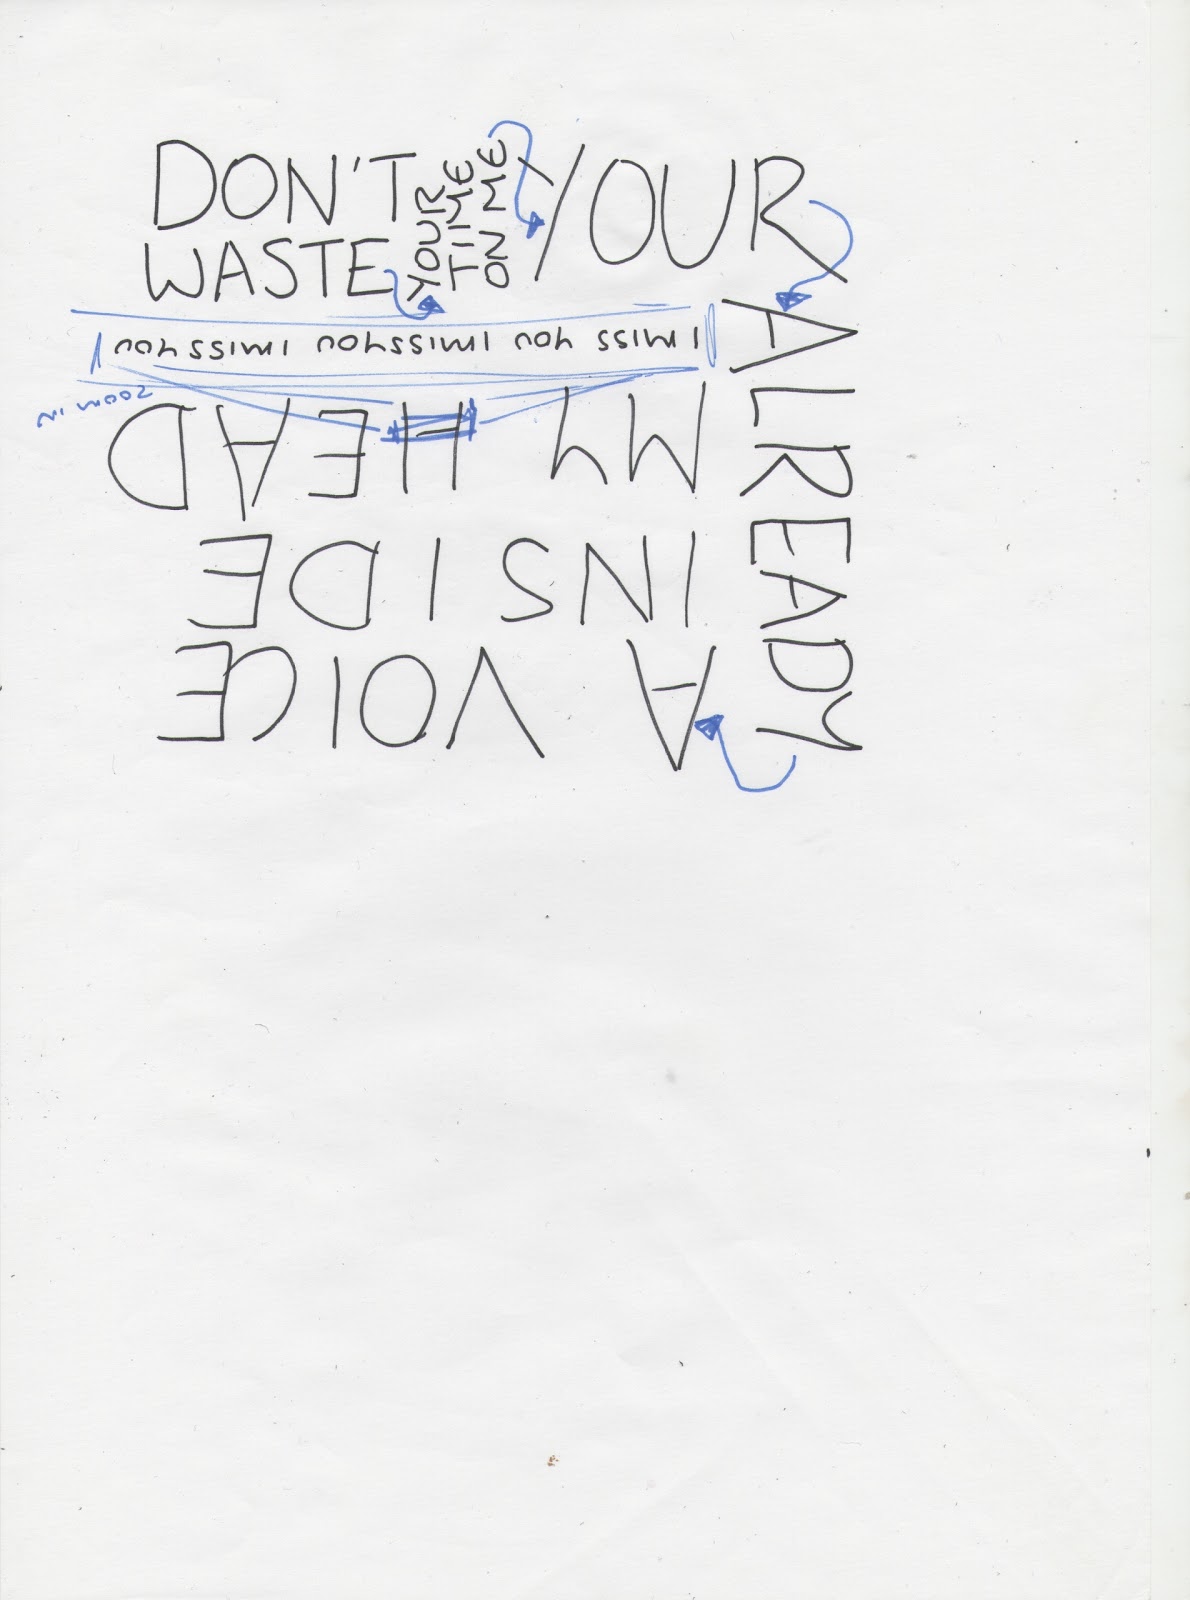 DON'T
WASTE
YOUR
TIME
ON ME
YOUR
ALREADY
A VOICE
INSIDE
MY HEAD
I MISS YOU I MISS YOU I MISS YOU
ZOOM IN